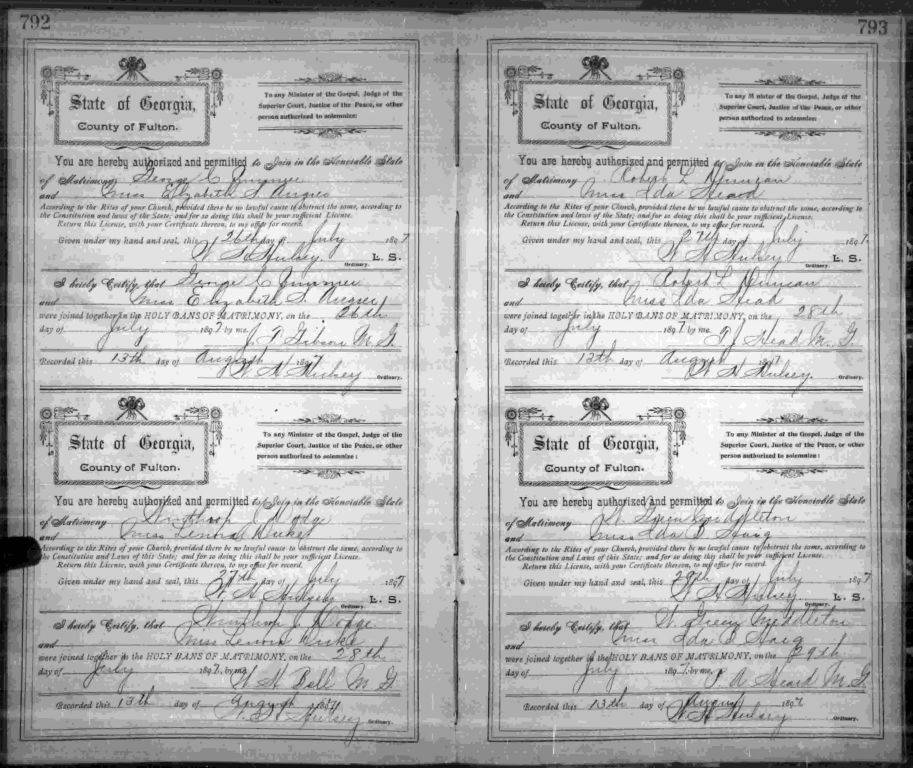 792
State of Georgia,
County of Fulton.
To any Minister of the Gospel, Judge of the
Superior Court, Justice of the Peace, or other
person authorized to solemnize:
You are hereby authorized and permitted to Join in the Honorable State
of Matrimony George
and Miss Elizabeth S.
According to the Rites of your Church, provided there be no lawful cause to obstruct the same, according to
the Constitution and laws of the State; and for so doing this shall be your sufficient License.
Return this License, with your Certificate thereon, to my office for record.
Given under my hand and seal, this 26th day of July 1897
W H Hulsey L. S.
Ordinary.
I hereby Certify, that George
and Miss Elizabeth S.
were joined together in the HOLY BANS OF MATRIMONY, on the 26th
day of July 1897 by me, J. Gibson M. G.
Recorded this 13th day of August 1897
W H Hulsey Ordinary.
State of Georgia,
County of Fulton.
To any Minister of the Gospel, Judge of the
Superior Court, Justice of the Peace, or other
person authorized to solemnize:
You are hereby authorized and permitted to Join in the Honorable State
of Matrimony Dodge
and Miss
According to the Rites of your Church, provided there be no lawful cause to obstruct the same, according to
the Constitution and Laws of this State; and for so doing this shall be your sufficient License.
Return this License, with your Certificate thereon, to my office for record.
Given under my hand and seal, this 27th day of July 1897
W H Hulsey L. S.
Ordinary.
I hereby Certify, that Dodge
and Miss
were joined together in the HOLY BANS OF MATRIMONY, on the 28th
day of July 1897, by me, W H Bell M G
Recorded this 13th day of August 1897
W H Hulsey Ordinary.
793
State of Georgia,
County of Fulton.
To any Minister of the Gospel, Judge of the
Superior Court, Justice of the Peace, or other
person authorized to solemnize:
You are hereby authorized and permitted to Join in the Honorable State
of Matrimony Robert L
and Miss Ida Head
According to the Rites of your Church, provided there be no lawful cause to obstruct the same, according to
the Constitution and laws of this State; and for so doing this shall be your sufficient License.
Return this License, with your Certificate thereon, to my office for record.
Given under my hand and seal, this 27th day of July 1897.
W H Hulsey L. S.
Ordinary.
I hereby Certify, that Robert L
and Miss Ida Head
were joined together in the HOLY BANS OF MATRIMONY, on the 28th
day of July 1897 by me, J Head M. G.
Recorded this 13th day of August 1897.
W H Hulsey. Ordinary.
State of Georgia,
County of Fulton.
To any Minister of the Gospel, Judge of the
Superior Court, Justice of the Peace, or other
person authorized to solemnize:
You are hereby authorized and permitted to Join in the Honorable State
of Matrimony W. Green Middleton
and Miss Ida Haig
According to the Rites of your Church, provided there be no lawful cause to obstruct the same, according to
the Constitution and Laws of this State; and for so doing this shall be your sufficient License.
Return this License, with your Certificate thereon, to my office for record.
Given under my hand and seal, this 28th day of July 1897
W H Hulsey L. S.
Ordinary.
I hereby Certify, that W. Green Middleton
and Miss Ida Haig
were joined together in the HOLY BANS OF MATRIMONY, on the 29th
day of July 1897 by me, A Heard M. G
Recorded this 13th day of August 1897
W H Hulsey Ordinary.